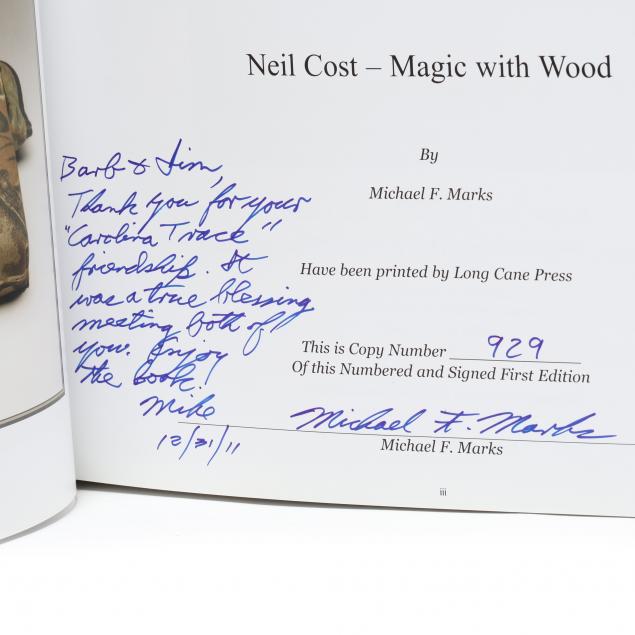 Neil Cost – Magic with Wood
By
Michael F. Marks
Have been printed by Long Cane Press
This is Copy Number 929
Of this Numbered and Signed First Edition
Michael F. Marks
Michael F. Marks
iii
Barb & Jim,
Thank you for your
"Carolina Trace"
friendship. It
was a true blessing
meeting both of
you. Enjoy
the book!
Mike
12/31/11